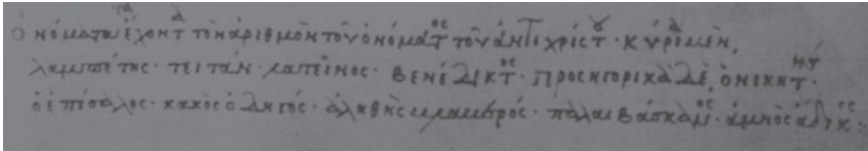 ὀνόματα ἔχοντα τὸν ἀριθμὸν τοῦ ὀνόματος τοῦ ἀντιχρίστου · κύρια μὲν,
λαμπέτης · τειτάν · λατεῖνος · βενέδικτος · προσηγορικὰ δὲ, ὁ νικητής ·
ὁ ἐπίσαλος · κακὸς ὁδηγός · ἀληθὴς βλαβερός · πάλαι βάσκανος · ἀμνὸς ἄδικος :